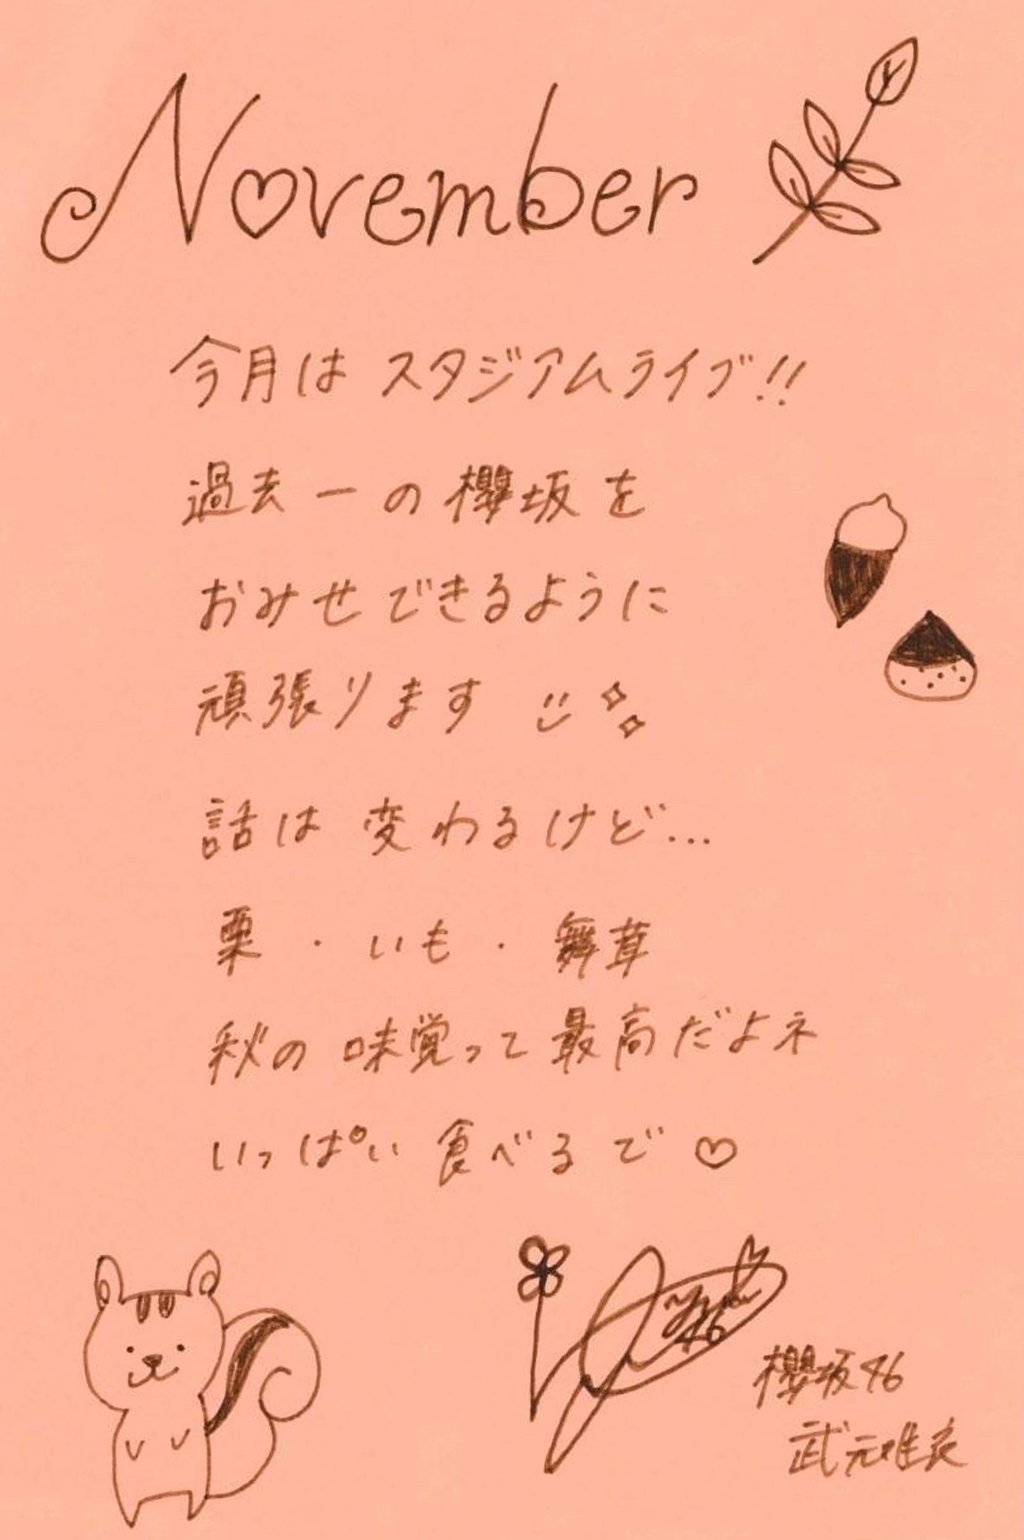 November
今月は スタジアムライブ!!
過去一の櫻坂を
おみせできるように
頑張ります
話は 変わるけど...
栗・いも・舞茸
秋の味覚って最高だよネ
いっぱい食べるで♡
櫻坂46
武元唯衣